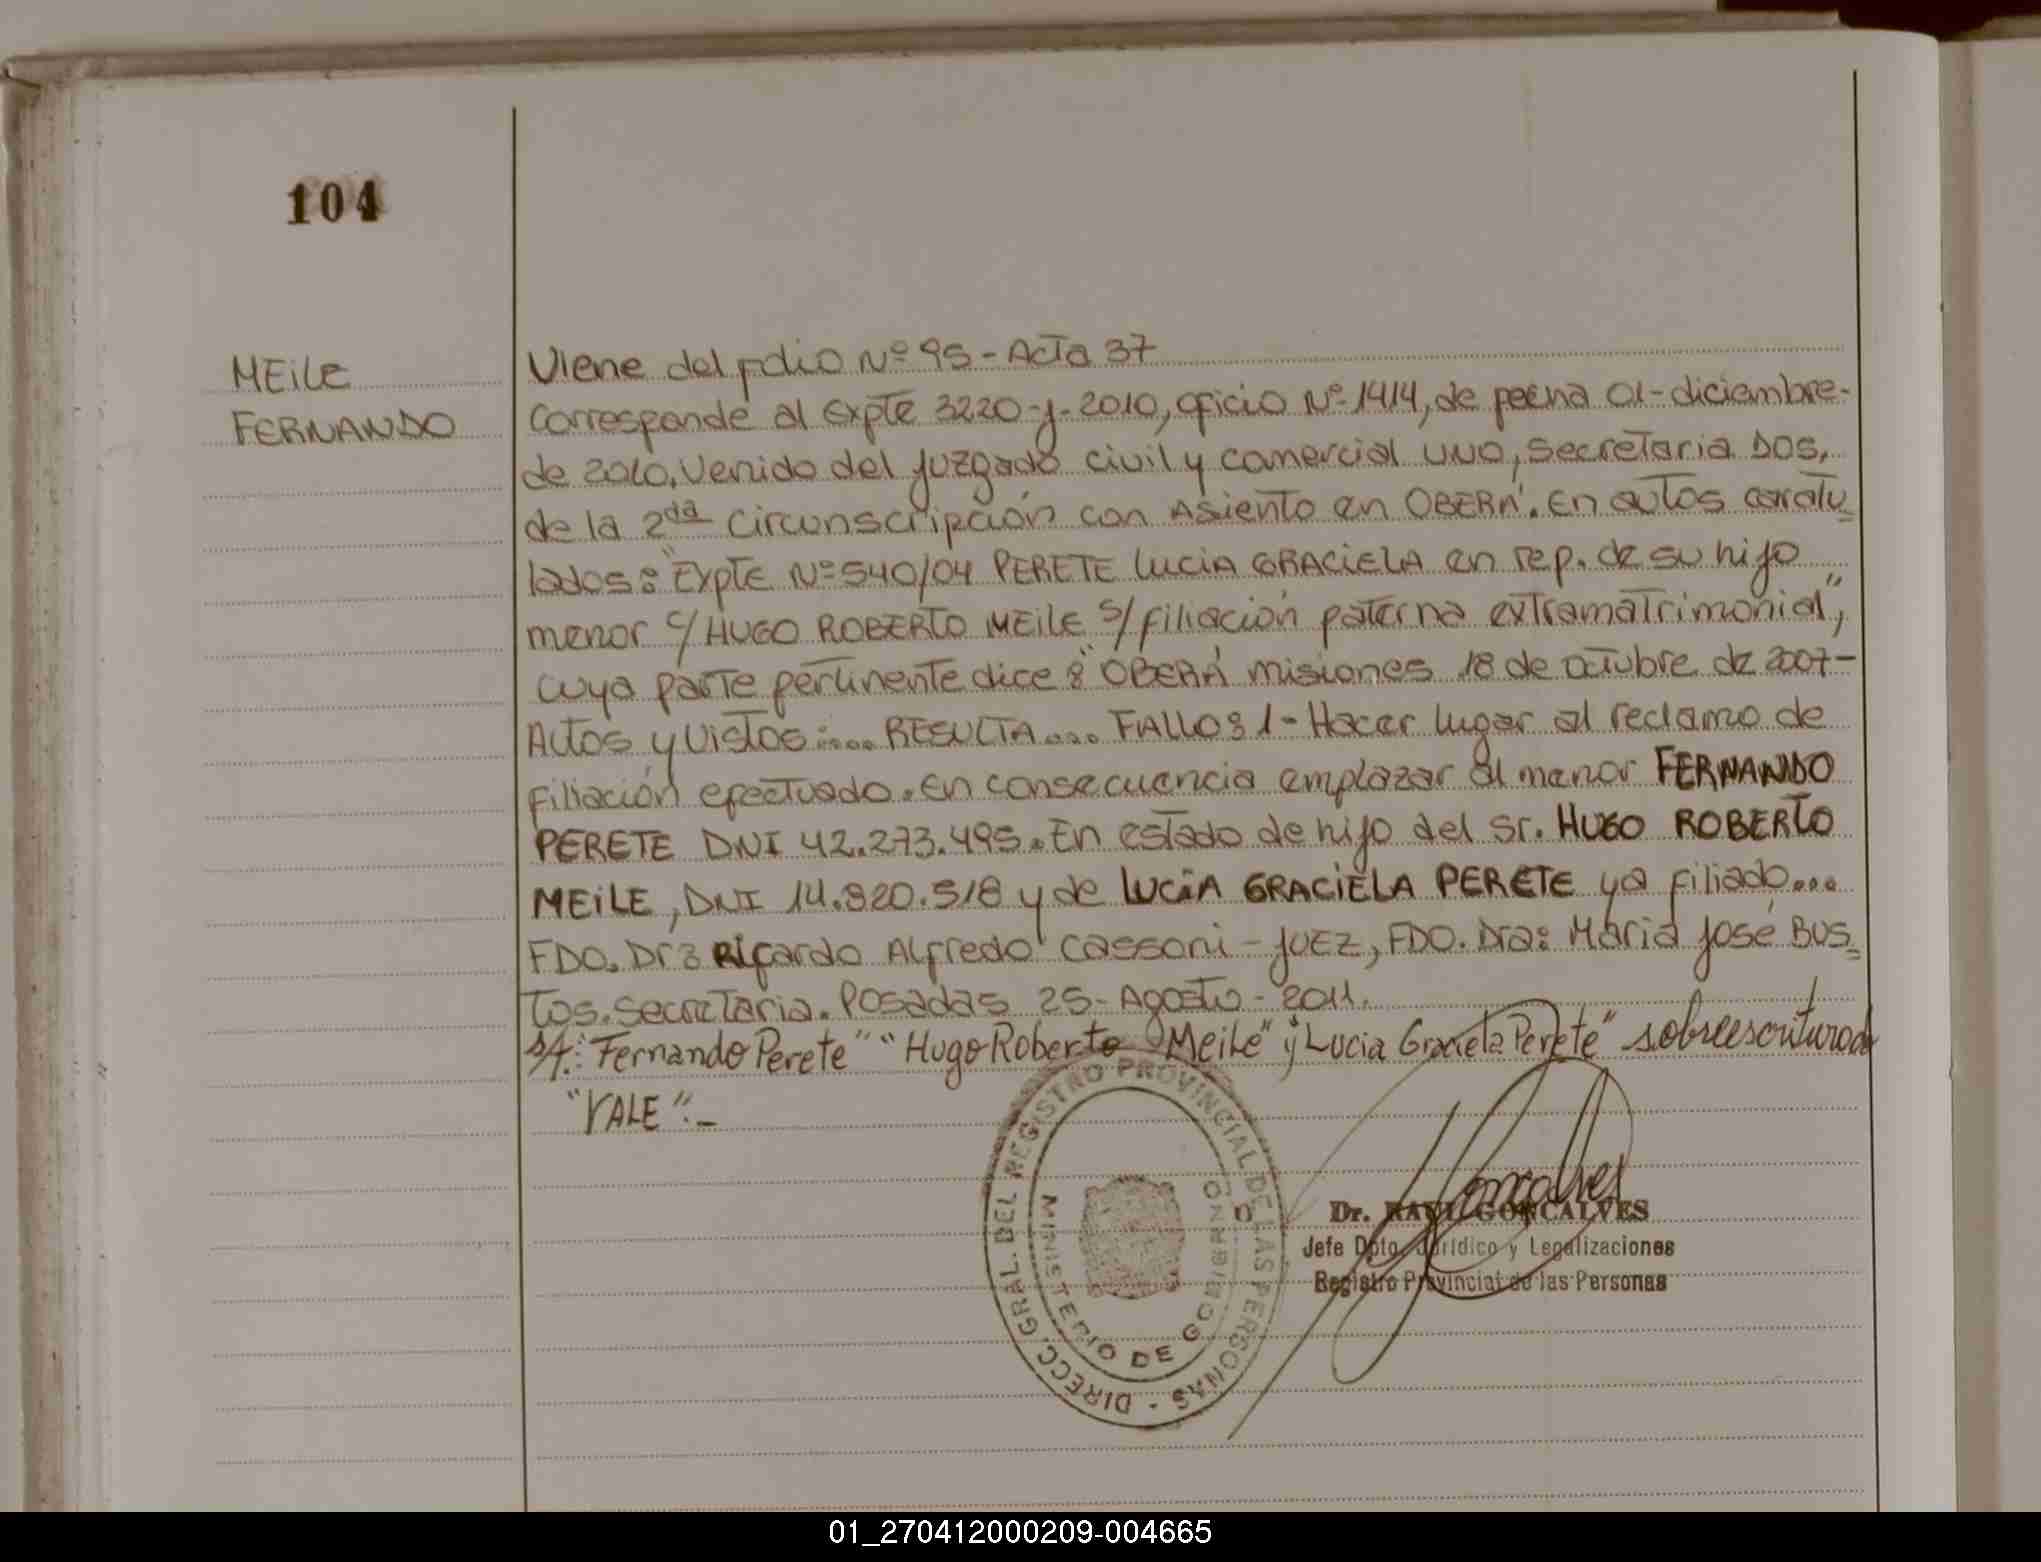 104
MEiLE
FERNANDO
Viene del folio Nº 95 - Acta 37
Corresponde al Expte 3220-J-2010, oficio Nº 1414, de fecha 01-diciembre-
de 2010. Venido del Juzgado civil y comercial UNO, secretaria DOS,
de la 2da circunscripción con Asiento en OBERÁ. En autos caratu
lados: "Expte Nº 540/04 PERETE Lucia GRACiELA en rep. de su hijo
menor c/ HUGO ROBERTO MEiLE s/ filiación paterna extramatrimonial",
cuya parte pertinente dice: "OBERÁ misiones 18 de octubre de 2007-
Autos y Vistos:.... RESULTA.... FALLO: 1- Hacer lugar al reclamo de
filiación efectuado. En consecuencia emplazar al menor FERNANDO
PERETE DNI 42.273.495. En estado de hijo del sr. HUGO ROBERTO
MEiLE, DNI 14.820.518 y de LUCiA GRACiELA PERETE ya filiado...
FDO. Dr: Ricardo Alfredo Cassoni - JUEZ, FDO. Dra: Maria José BUS
tos. Secretaria. Posadas 25-Agosto-2011.
s/A.: "Fernando Perete" "Hugo Roberto Meile" y "Lucia Graciela Perete" sobreescriturado
"VALE".-
DIRECC. GRAL. DEL REGISTRO PROVINCIAL DE LAS PERSONAS -
MINISTERIO DE GOBIERNO
Dr. RAUL GONCALVES
Jefe Dpto. Jurídico y Legalizaciones
Registro Provincial de las Personas
01_270412000209-004665